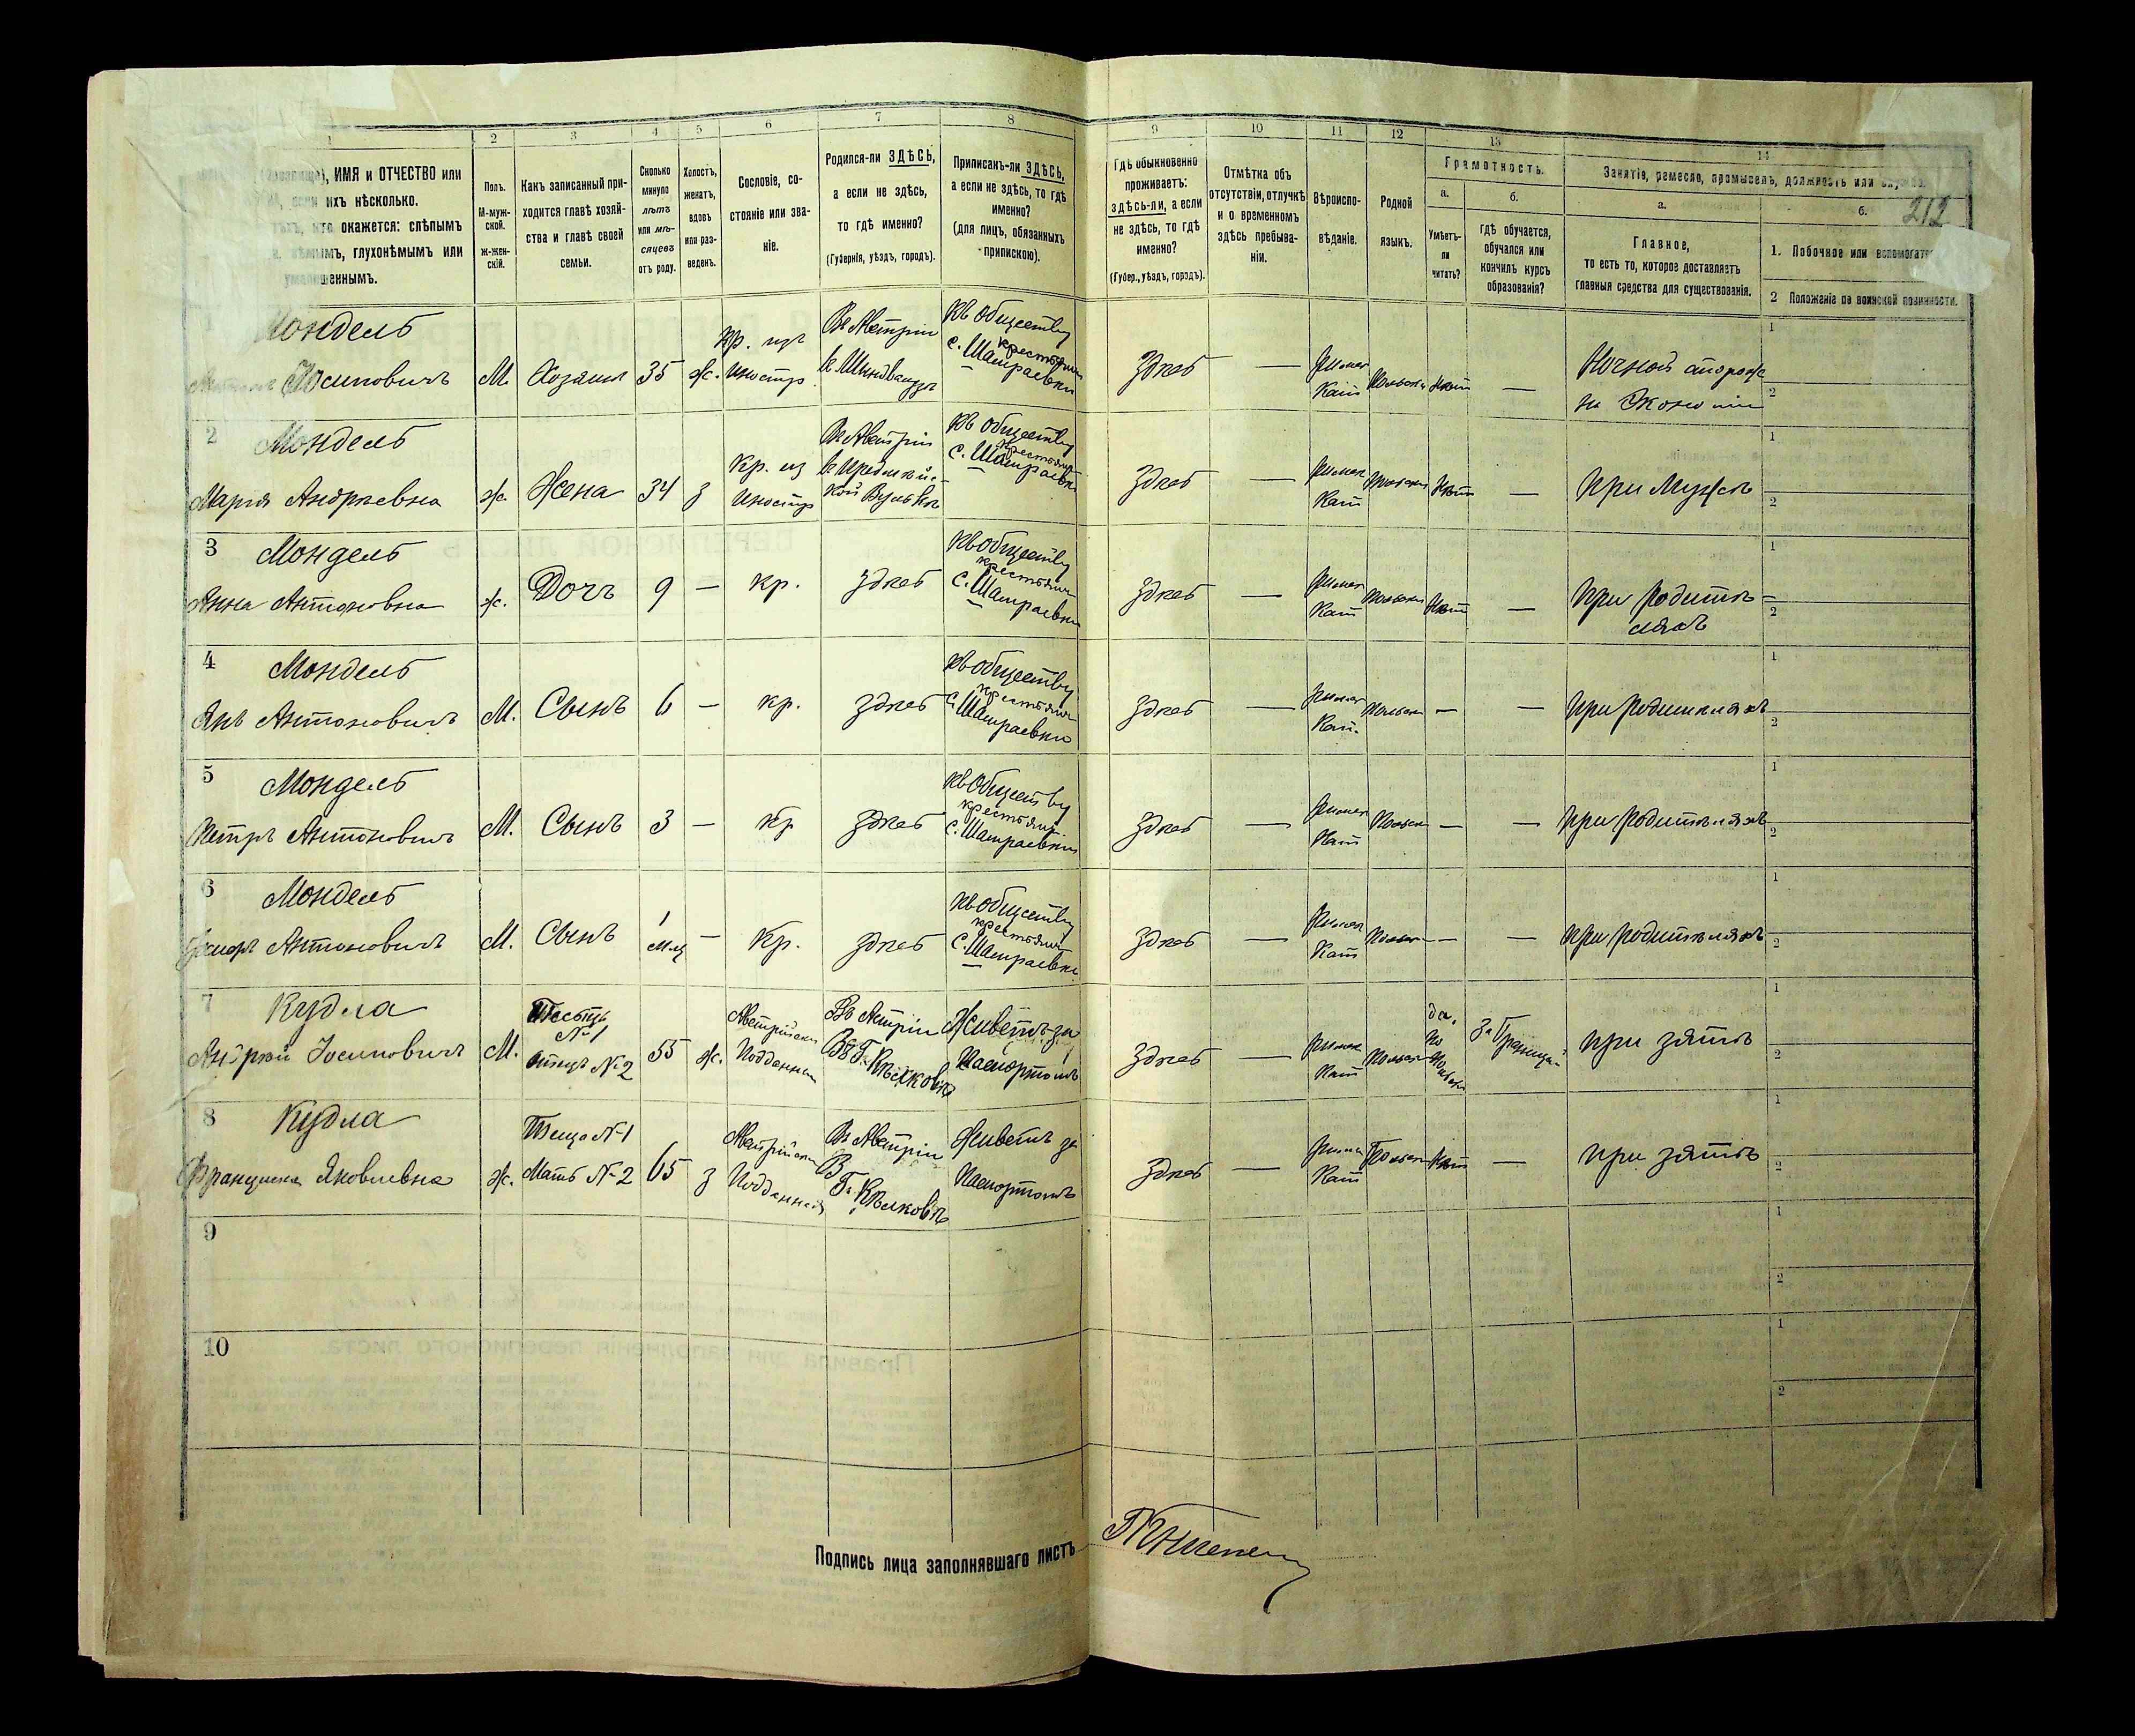 1 2 3 4 5 6 7 8 9 10 11 12 13 14
ИМЯ и ОТЧЕСТВО или
если ихъ нѣсколько.
кто окажется: слѣпымъ
нѣмымъ, глухонѣмымъ или
умалишеннымъ.
Полъ.
М-муж-
ской.
Ж-жен-
скій.
Какъ записанный при-
ходится главѣ хозяй-
ства и главѣ своей
семьи.
Сколько
минуло
лѣтъ
или мѣ-
сяцевъ
отъ роду.
Холостъ,
женатъ,
вдовъ
или раз-
веденъ.
Сословіе, со-
стояніе или зва-
ніе.
Родился-ли ЗДѢСЬ,
а если не здѣсь,
то гдѣ именно?
(Губернія, уѣздъ, городъ).
Приписанъ-ли ЗДѢСЬ,
а если не здѣсь, то гдѣ
именно?
(для лицъ, обязанныхъ
припискою).
Гдѣ обыкновенно
проживаетъ:
здѣсь-ли, а если
не здѣсь, то гдѣ
именно?
(Губер., уѣздъ, городъ).
Отмѣтка объ
отсутствіи, отлучкѣ
и о временномъ
здѣсь пребыва-
ніи.
Вѣроиспо-
вѣданіе.
Родной
языкъ.
Грамотность.
а.
Умѣетъ-
ли
читать?
б.
гдѣ обучается,
обучался или
кончилъ курсъ
образованія?
Занятіе, ремесло, промыселъ, должность или служба.
а.
Главное,
то есть то, которое доставляетъ
главныя средства для существованія.
б.
212
1. Побочное или вспомогат
2 Положеніе по воинской повинности.
1 Мондель
Осиповичъ М Хозяинъ 35 ж. Кр. изъ иностр Въ Австріи Къ обществу крестьянъ с. Шамраевки здѣсь — Римск Кат Польски нѣтъ — Ночной сторож
1 2
2 Мондель
Мария Андрѣевна ж. Жена 34 з Кр. из иностр Въ Австріи Къ обществу крестьянъ с. Шамраевки здѣсь — Римск Кат Польски Нѣт — При Мужѣ
1 2
3 Мондель
Анна Антоновна ж. Дочъ 9 — кр. здѣсь Къ обществу крестьянъ с. Шамраевки здѣсь — Римск Кат Польски Нѣт — при родитѣ-
ляхъ
1 2
4 Мондель
Янъ Антоновичъ М. Сынъ 6 — кр. здѣсь Къ обществу крестьянъ с. Шамраевки здѣсь — Римск Кат. Польски — — при родителяхъ
1 2
5 Мондель
Петръ Антоновичъ М. Сынъ 3 — кр здѣсь Къ обществу крестьян с. Шамраевки здѣсь — Римск Кат Польск — — при родитѣляхъ
1 2
6 Мондель
Антоновичъ М. Сынъ 1 мѣц — Кр. здѣсь Къ обществу крестьян с. Шамраевки здѣсь — Римск Кат Польск — — при родитѣляхъ
1 2
7 Кудла
Андрѣй Іосиповичъ М. Тесть №1 отецъ №2 55 ж. Австрійски Подданный Въ Астріи Живетъ за Паспортомъ здѣсь — Римск Кат Польск да, по За Границей при зятѣ
1 2
8 Кудла
Францишка Яковлевна ж. Теща №1 Мать №2 65 з Австрійски Подданная Въ Австріи Живетъ за Паспортомъ здѣсь — Римск Кат Польск нѣт — при зятѣ
1 2
9
1 2
10
1 2
Подпись лица заполнявшаго листъ